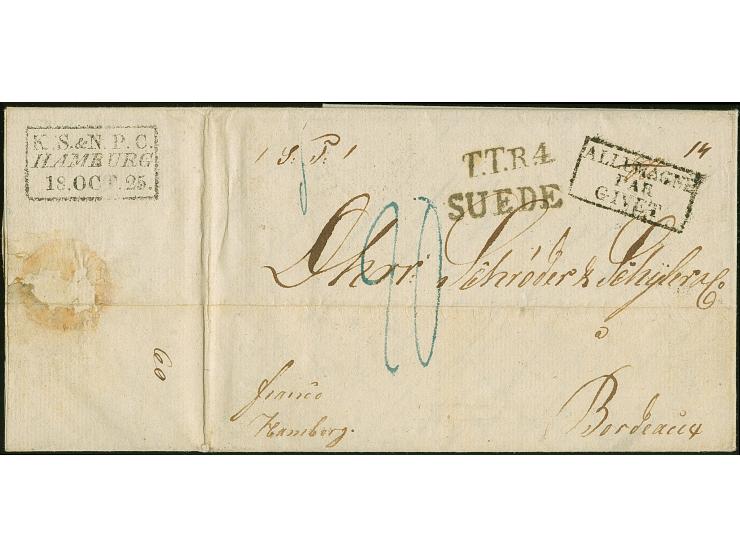 K.S.&N.P.C.
HAMBURG
18.OCT.25.
60
T.T.R.4.
SUEDE
ALLEMAGNE
PAR
GIVET
14
Dhrr. Schröder & Schÿler & Co.
a
Bordeaux
franco
Hamborg.
90